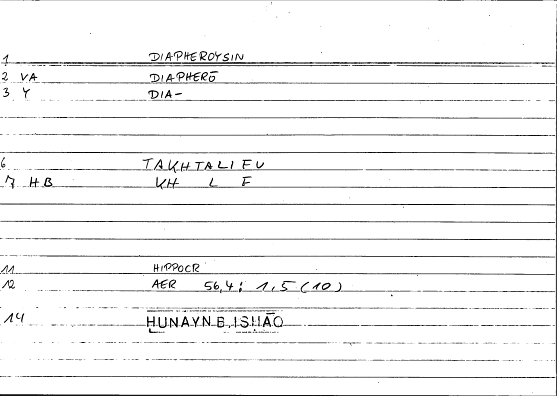 1 DIAPHEROYSIN
2 VA DIAPHERŌ
3 Y DIA-
6 TAKHTALIFU
7 HB KH L F
11 HIPPOCR
12 AER 56,4: 1,5 (10)
14 HUNAYN B. ISḤĀQ